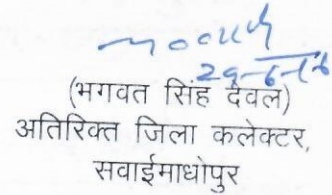 29-6-16
(भगवत सिंह देवल)
अतिरिक्त जिला कलेक्टर,
सवाईमाधोपुर